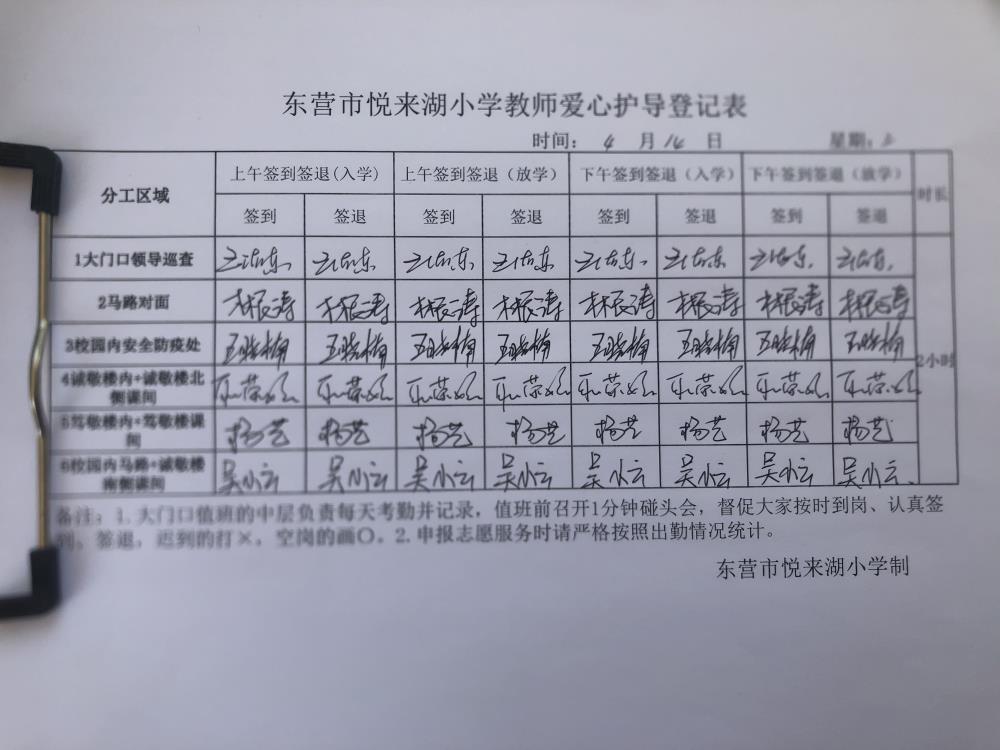 东营市悦来湖小学教师爱心护导登记表
时间： 4 月 14 日 星期：
分工区域 上午签到签退(入学) 上午签到签退（放学） 下午签到签退（入学） 下午签到签退（放学） 时长
签到 签退 签到 签退 签到 签退 签到 签退
1大门口领导巡查
2马路对面 林振涛 林振涛 林振涛 林振涛 林振涛 林振涛 林振涛 林振涛
3校园内安全防疫处 王晓楠 王晓楠 王晓楠 王晓楠 王晓楠 王晓楠 王晓楠 王晓楠
2小时
4诚敬楼内+诚敬楼北
侧课间
5笃敬楼内+笃敬楼课
间 杨艺 杨艺 杨艺 杨艺 杨艺 杨艺 杨艺 杨艺
6校园内马路+诚敬楼
南侧课间 吴小云 吴小云 吴小云 吴小云 吴小云 吴小云 吴小云 吴小云
备注：1.大门口值班的中层负责每天考勤并记录，值班前召开1分钟碰头会，督促大家按时到岗、认真签
到、签退，迟到的打×，空岗的画〇。2.申报志愿服务时请严格按照出勤情况统计。
东营市悦来湖小学制